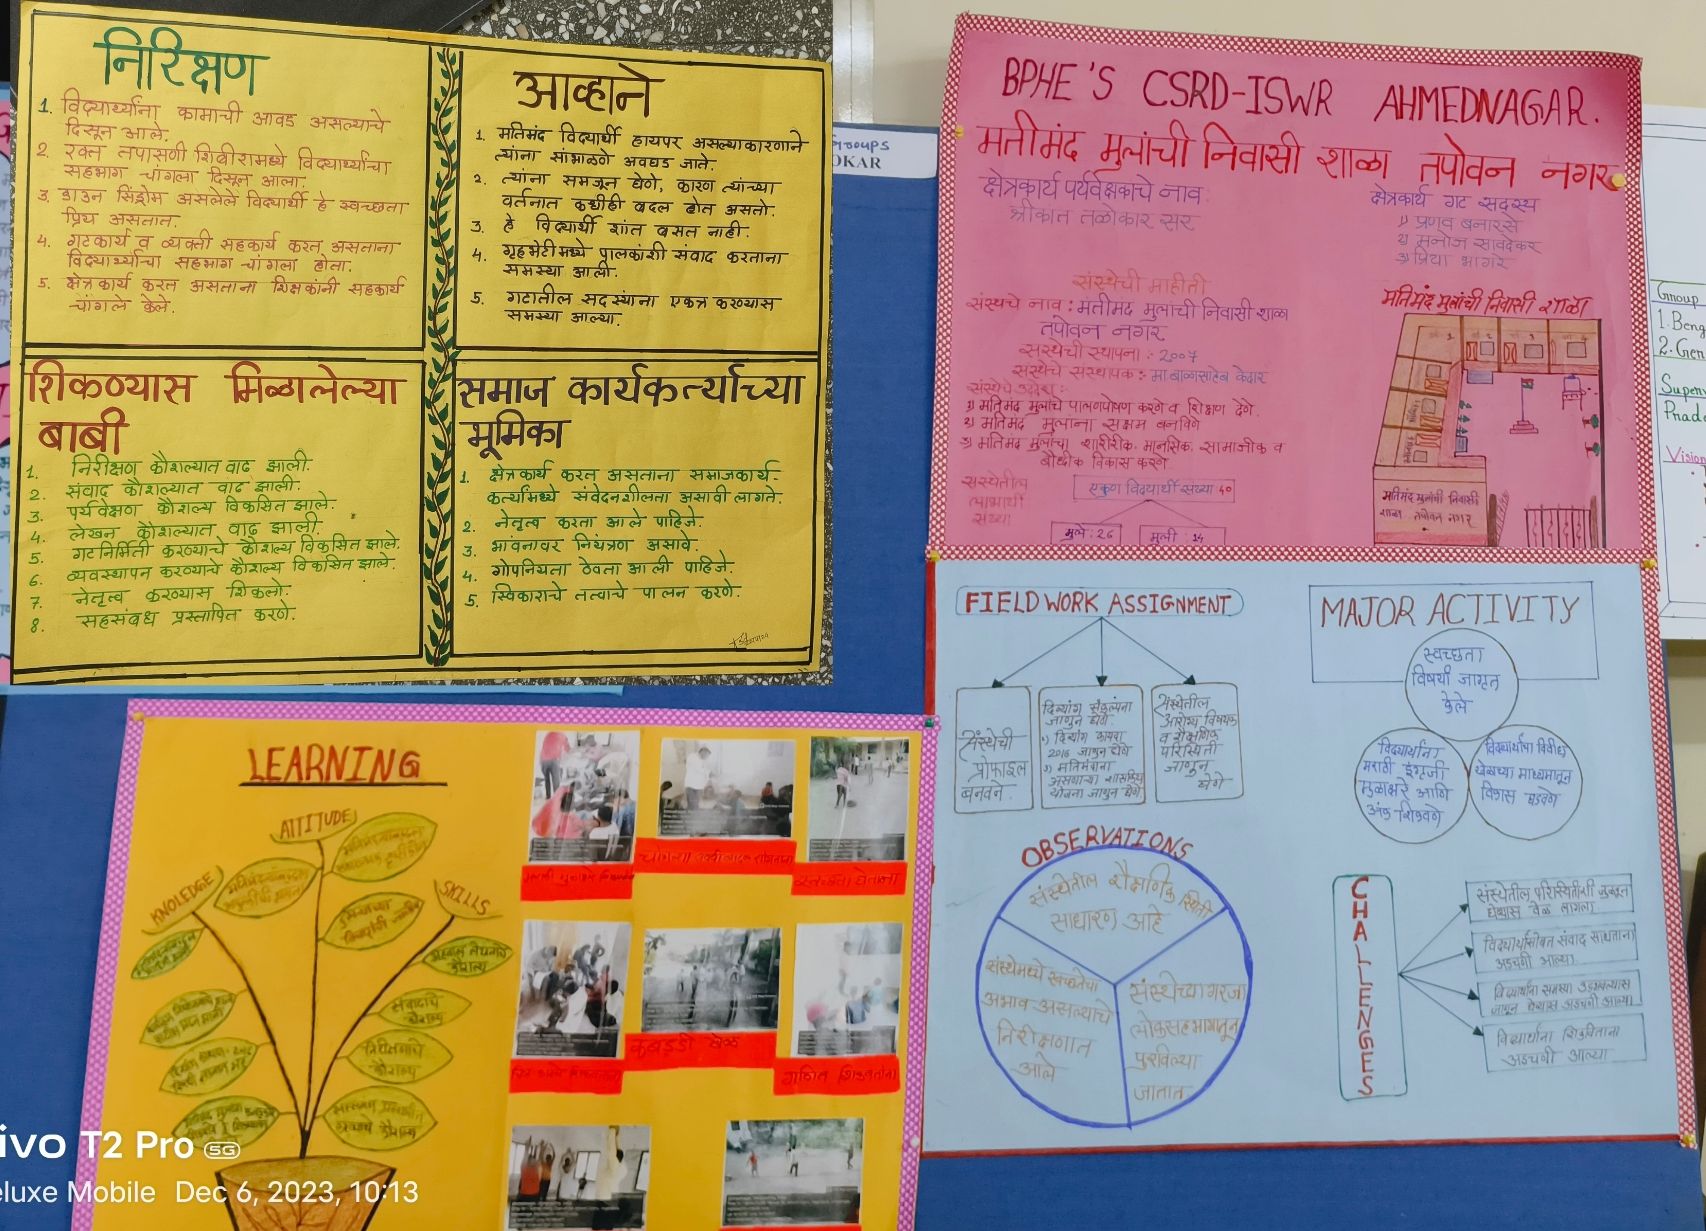 निरिक्षण
1. विद्यार्थ्यांना कामाची आवड असल्याचे
दिसून आले.
2. रक्त तपासणी शिबीरामध्ये विद्यार्थ्यांचा
सहभाग चांगला दिसून आला.
3. डाउन सिंड्रोम असलेले विद्यार्थी हे स्वच्छता
प्रिय असतात.
4. गटकार्य व व्यक्ती सहकार्य करत असताना
विद्यार्थ्यांचा सहभाग चांगला होता.
5. क्षेत्रकार्य करत असताना शिक्षकांनी सहकार्य
चांगले केले.
आव्हाने
1. मतिमंद विद्यार्थी हायपर असल्याकारणाने
त्यांना सांभाळणे अवघड जाते.
2. त्यांना समजून घेणे, कारण त्यांच्या
वर्तनात कधीही बदल होत असतो.
3. हे विद्यार्थी शांत बसत नाही.
4. गृहभेटीमध्ये पालकांशी संवाद करताना
समस्या आली.
5. गटातील सदस्यांना एकत्र करण्यास
समस्या आल्या.
शिकण्यास मिळालेल्या
बाबी
1. निरीक्षण कौशल्यात वाढ झाली.
2. संवाद कौशल्यात वाढ झाली.
3. पर्यवेक्षण कौशल्य विकसित झाले.
4. लेखन कौशल्यात वाढ झाली.
5. गटनिर्मिती करण्याचे कौशल्य विकसित झाले.
6. व्यवस्थापन करण्याचे कौशल्य विकसित झाले.
7. नेतृत्व करण्यास शिकलो.
8. सहसंबंध प्रस्तापित करणे.
समाज कार्यकर्त्याच्या
भूमिका
1. क्षेत्रकार्य करत असताना समाजकार्य-
कर्त्यामध्ये संवेदनशीलता असावी लागते.
2. नेतृत्व करता आले पाहिजे.
3. भावनावर नियंत्रण असावे.
4. गोपनियता ठेवता आली पाहिजे.
5. स्विकाराचे तत्वाचे पालन करणे.
OKAR
BPHE'S CSRD-ISWR AHMEDNAGAR.
मतीमंद मुलांची निवासी शाळा तपोवन नगर
क्षेत्रकार्य पर्यवेक्षकाचे नाव:
श्रीकांत तळोकार सर
क्षेत्रकार्य गट सदस्य
1) प्रणव बनारसे
2) मनोज सावदेकर
3) प्रिया भागरे
संस्थेची माहीती
संस्थचे नाव : मतीमंद मुलांची निवासी शाळा
तपोवन नगर
संस्थेची स्थापना :- 2007
संस्थेचे संस्थापक :- मा बाळासाहेब केदार
संस्थेचे उद्देश :-
1) मतिमंद मुलांचे पालणपोषण करणे व शिक्षण देणे.
2) मतिमंद मुलांना सक्षम बनविणे
3) मतिमंद मुलांचा शारीरीक, मानसिक, सामाजीक व
बौद्धीक विकास करणे
संस्थेतील
लाभार्थी
संख्या
एकुण विद्यार्थी संख्या 40
मुले : 26
मुली : 14
मतिमंद मुलांची निवासी शाळा
मतिमंद मुलांची निवासी
शाळा तपोवन नगर
Group
1. Beng
2. Gen
Superv
Prade
Vision
FIELD WORK ASSIGNMENT
संस्थेची
प्रोफाइल
बनवन.
दिव्यांग संकल्पना
जाणून घेणे.
1) दिव्यांग कायदा
2016 जाणून घेणे
2) मतिमंदांना
असणाऱ्या शासकिय
योजना जाणून घेणे
संस्थेतील
आरोग्य विषयक
व शैक्षणिक
परिस्थिती
जाणून
घेणे
MAJOR ACTIVITY
स्वच्छता
विषयी जागृत
केले
विद्यार्थ्यांना
मराठी इंग्रजी
मुळाक्षरे आणि
अंक शिकवणे
विद्यार्थ्यांचा विविध
खेळाच्या माध्यमातून
विकास घडवणे
OBSERVATIONS
संस्थेतील शैक्षणिक स्थिती
साधारण आहे
संस्थेमध्ये स्वच्छतेचा
अभाव असल्याचे
निरीक्षणात
आले
संस्थेच्या गरजा
लोकसहभागातून
पुरविल्या
जातात
CHALLENGES
संस्थेतील परिस्थितीशी जुळवून
घेण्यास वेळ लागला
विद्यार्थ्यांसोबत संवाद साधताना
अडचणी आल्या
विद्यार्थ्यांना समस्या
जाणून घेण्यास अडचणी आल्या
विद्यार्थ्यांना शिकविताना
अडचणी आल्या
LEARNING
ATTITUDE
KNOLEDGE
SKILLS
अहवाल लेखनाचे
कौशल्य
संवादाचे
कौशल्य
निरीक्षणाचे
कौशल्य
कबड्डी खेळ
गणित शिकवतांना
vivo T2 Pro 5G
eluxe Mobile Dec 6, 2023, 10:13